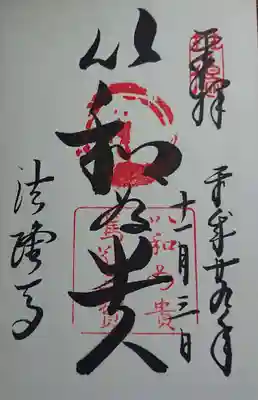 奉拝
平成廿九年
十一月三日
以和為貴
法隆寺
以和為貴